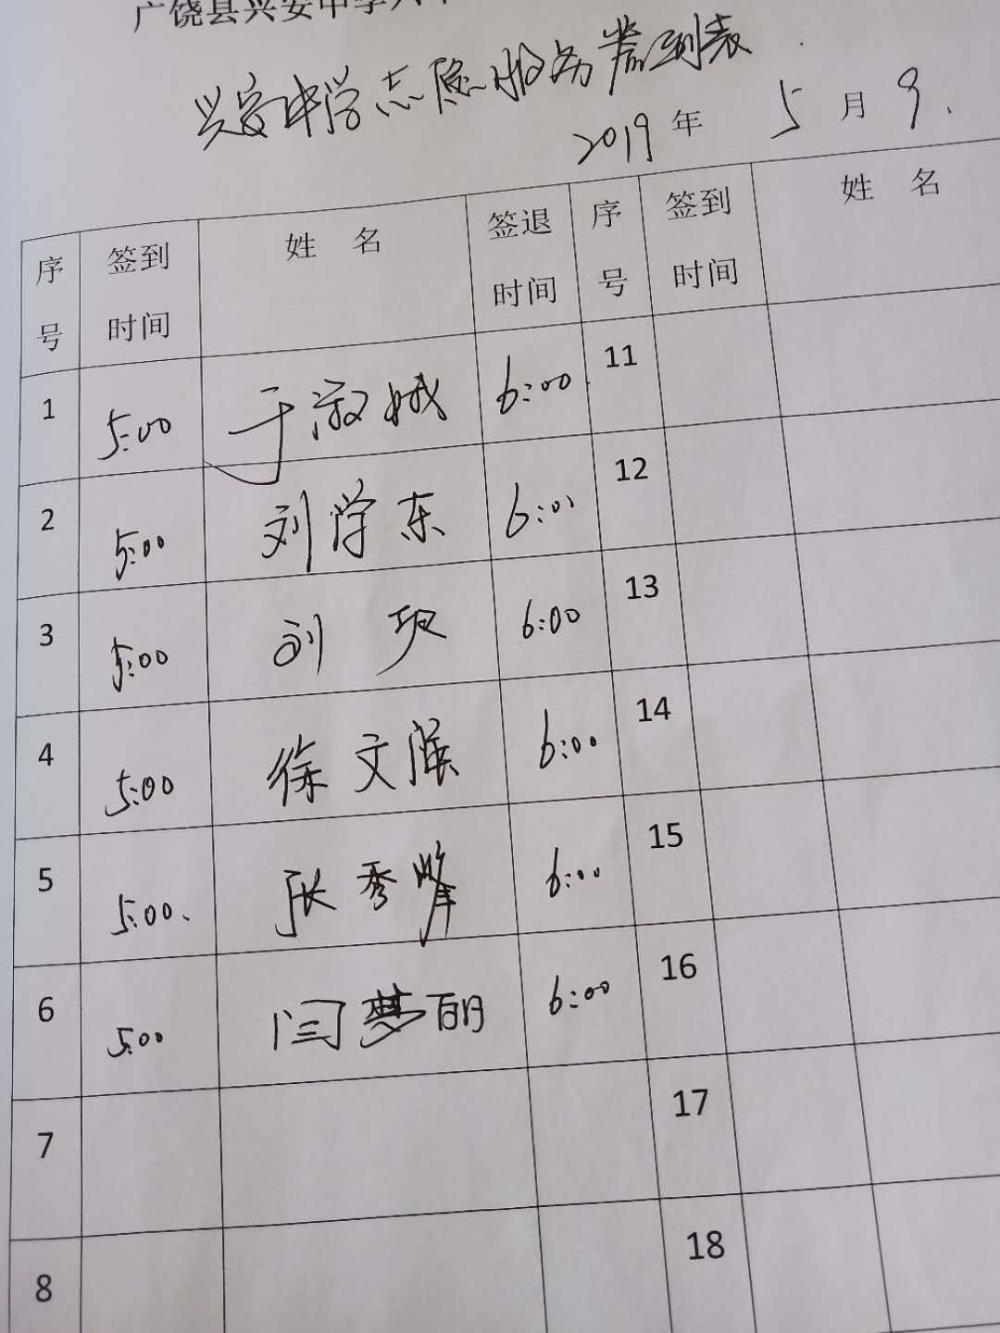 广饶县兴安中学
兴安中学志愿服务签到表
2019年 5月 9
序号 签到时间 姓 名 签退时间 序号 签到时间 姓 名
1 5:00 于淑娥 6:00 11
2 5:00 刘学东 6:00 12
3 5:00 刘 6:00 13
4 5:00 徐文 6:00 14
5 5:00 张秀峰 6:00 15
6 5:00 闫梦丽 6:00 16
7 17
8 18